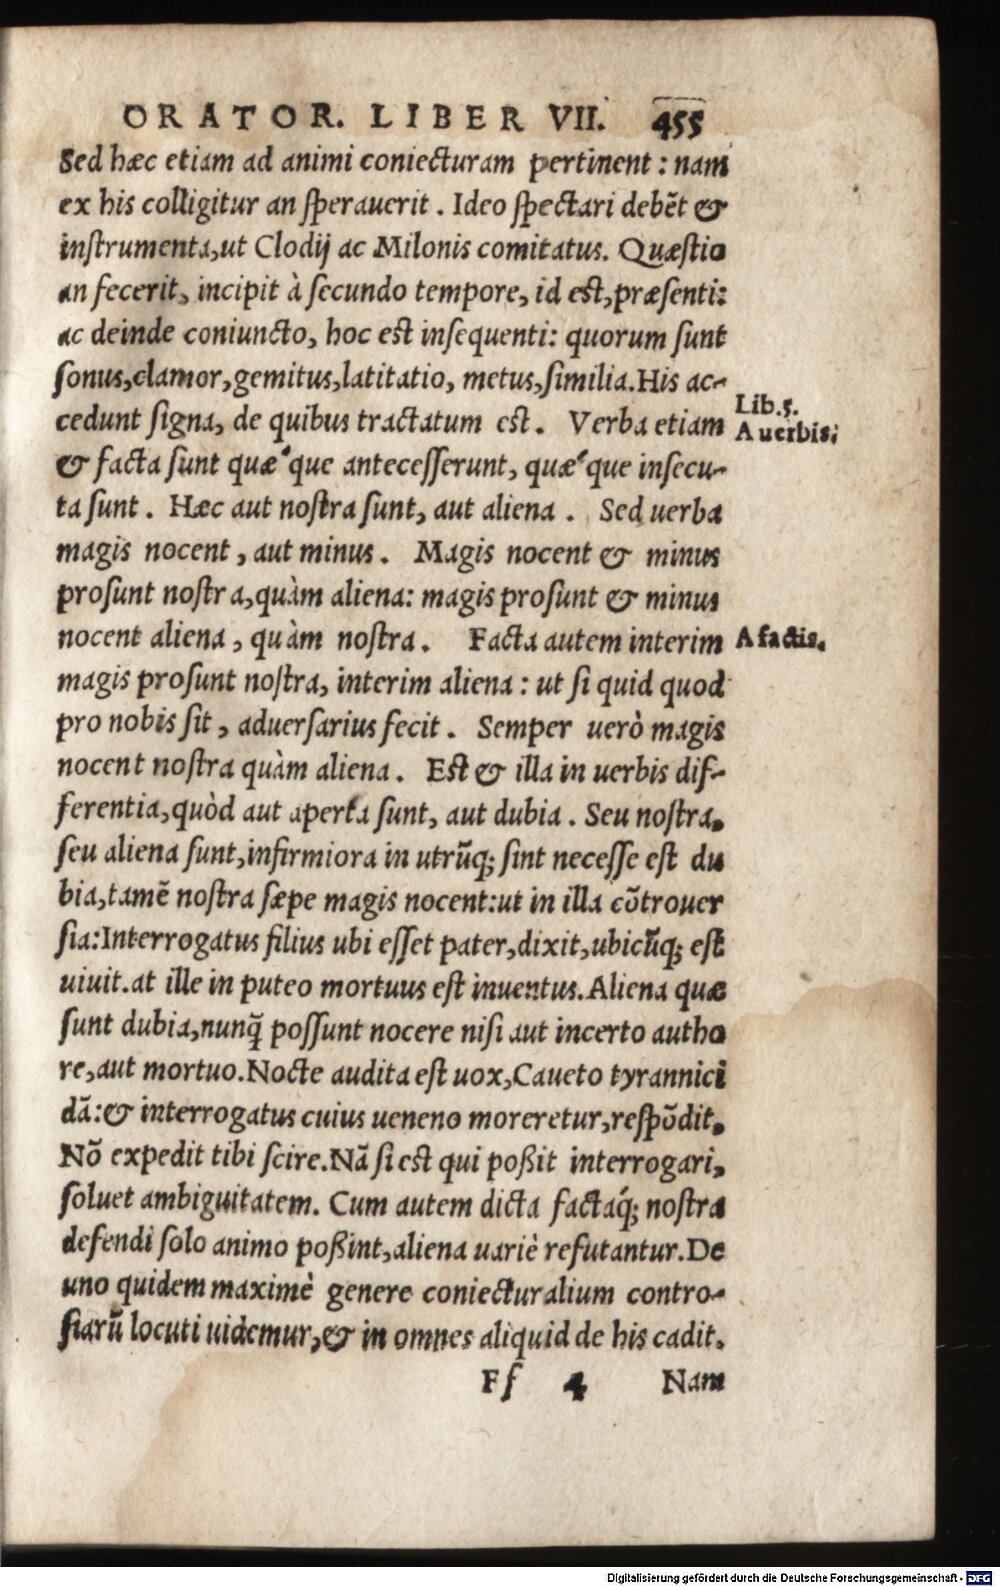 ORATOR. LIBER VII. 455
Sed hæc etiam ad animi coniecturam pertinent : nam
ex his colligitur an ſperauerit . Ideo ſpectari debẽt &
inſtrumenta,ut Clodij ac Milonis comitatus. Quæſtio
an fecerit, incipit à ſecundo tempore, id eſt,præſenti:
ac deinde coniuncto, hoc eſt inſequenti: quorum ſunt
ſonus,clamor,gemitus,latitatio, metus,ſimilia.His ac-
Lib.5.
cedunt ſigna, de quibus tractatum eſt . Verba etiam
A uerbis.
& facta ſunt quæ'que anteceſſerunt, quæ'que inſecu-
ta ſunt . Hæc aut noſtra ſunt, aut aliena . Sed uerba
magis nocent , aut minus . Magis nocent & minus
proſunt noſtra,quàm aliena: magis proſunt & minus
nocent aliena , quàm noſtra . Facta autem interim
A factis.
magis proſunt noſtra, interim aliena : ut ſi quid quod
pro nobis ſit , aduerſarius fecit . Semper uerò magis
nocent noſtra quàm aliena . Eſt & illa in uerbis dif-
ferentia,quòd aut aperta ſunt, aut dubia . Seu noſtra,
ſeu aliena ſunt,infirmiora in utrũq; ſint neceſſe eſt du
bia,tamẽ noſtra ſæpe magis nocent:ut in illa cõtrouer
ſia:Interrogatus filius ubi eſſet pater,dixit,ubicũq; eſt
uiuit.at ille in puteo mortuus eſt inuentus.Aliena quæ
ſunt dubia,nunq̃ poſſunt nocere niſi aut incerto autho
re,aut mortuo.Nocte audita eſt uox,Caueto tyrannici
dã:& interrogatus cuius ueneno moreretur,reſpõdit.
Nõ expedit tibi ſcire.Nã ſi eſt qui poßit interrogari,
ſoluet ambiguitatem. Cum autem dicta factaq́; noſtra
defendi ſolo animo poßint,aliena uariè refutantur.De
uno quidem maximè genere coniecturalium contro-
ſiarũ locuti uidemur,& in omnes aliquid de his cadit.
Ff 4 Nam
Digitalisierung gefördert durch die Deutsche Forschungsgemeinschaft - DFG